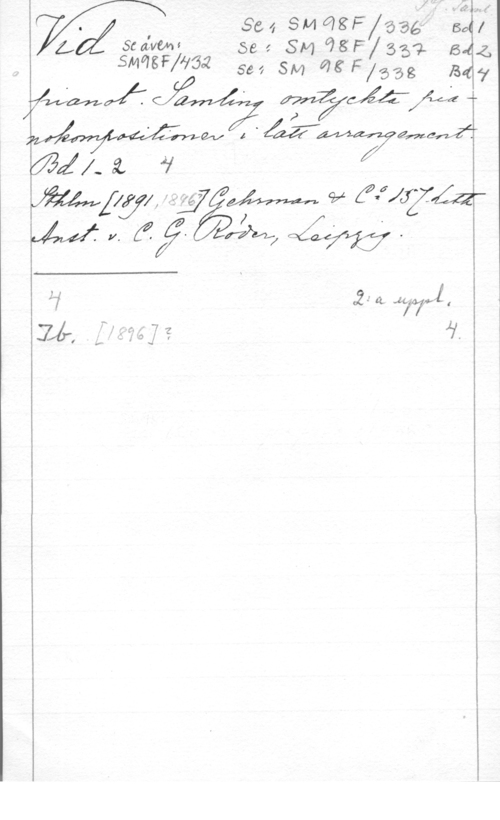 Pf. Saml
Se: SM98F/336 Bd 1
Vid se även: Se: SM 98F/337 Bd 2
SM98F/432 Se: SM 98F/338 Bd 4
pianot. Samling omtyckta pia-
nokompositioner i lätt arrangement.
Bd 1-2 4
Sthlm [1891, 1896] Gehrman & Co 157. Lith
Anst. v. C. G. Röder, Leipzig.
4 2:a uppl.
Ib. [1896]? 4.